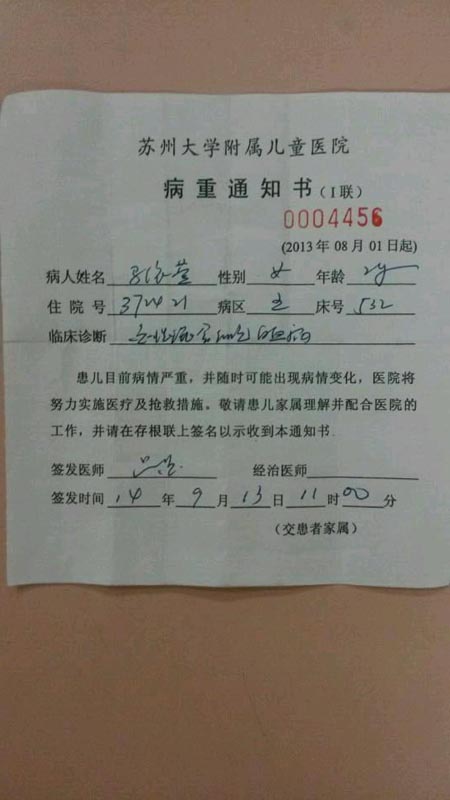 苏州大学附属儿童医院
病重通知书(I联)
0004456
(2013年08月01日起)
病人姓名 性别 女 年龄 2y
住院号 372421 病区 五 床号 532
临床诊断 急性淋巴细胞白血病
患儿目前病情严重，并随时可能出现病情变化，医院将
努力实施医疗及抢救措施。敬请患儿家属理解并配合医院的
工作，并请在存根联上签名以示收到本通知书.
签发医师 经治医师
签发时间 14 年 9 月 13 日 11 时 00 分
(交患者家属)